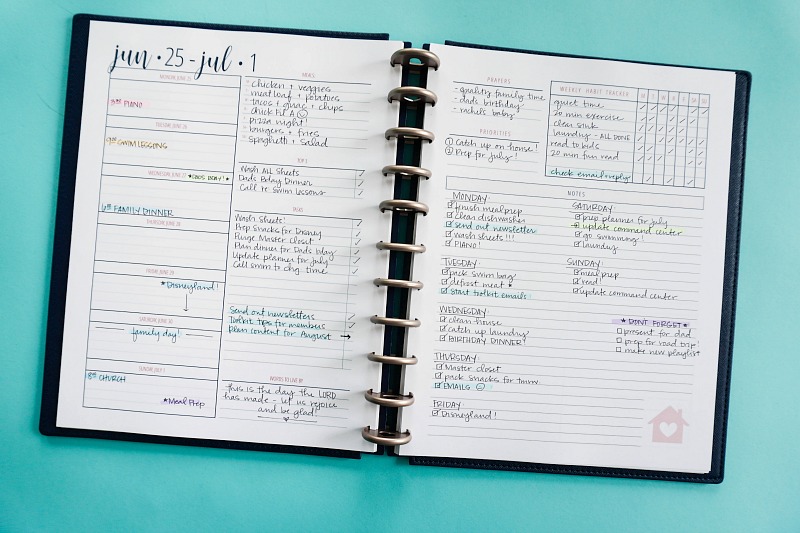 jun • 25 - jul • 1
MONDAY, JUNE 25
3:30 PIANO
TUESDAY, JUNE 26
SWIM LESSONS
WEDNESDAY, JUNE 27
*DAD'S BDAY!*
6:15 FAMILY DINNER
THURSDAY, JUNE 28
FRIDAY, JUNE 29
*Disneyland!
SATURDAY, JUNE 30
family day!
SUNDAY, JULY 1
CHURCH
*Meal Prep
MENU
chicken + veggies
meatloaf + potatoes
tacos + guac + chips
chick fil A
pizza night!
burgers + fries
spaghetti + salad
TOP 3
Wash ALL Sheets
Dads Bday Dinner
Call re: Swim Lessons
TASKS
Wash Sheets!
Prep Snacks for Disney
Purge Master Closet
Plan dinner for Dads bday
Update planner for July
Call swim to chg. time
Send out newsletters
Toolkit tips for members
Plan content for August →
WORDS TO LIVE BY
This is the day the LORD
has made - let us rejoice
and be glad
PRAYERS
- quality family time
- dad's birthday
- rachel's baby
PRIORITIES
① Catch up on house!
② Prep for July!
WEEKLY HABIT TRACKER
quiet time
20 min exercise
clean sink
laundry - ALL DONE
read to kids
20 min fun read
check email + reply
NOTES
MONDAY:
finish meal prep
clean dishwasher
send out newsletter
wash sheets!!!
PIANO!
TUESDAY:
pack swim bag
defrost meat *
start toolkit emails
WEDNESDAY:
clean house
catch up laundry
BIRTHDAY DINNER!
THURSDAY:
Master closet
pack snacks for
EMAILS ☺
FRIDAY:
Disneyland!
SATURDAY:
prep planner for july
update command center
go swimming!
laundry
SUNDAY:
meal prep
read!
update command center
*DON'T FORGET*
present for dad
prep for road trip!
make new playlist